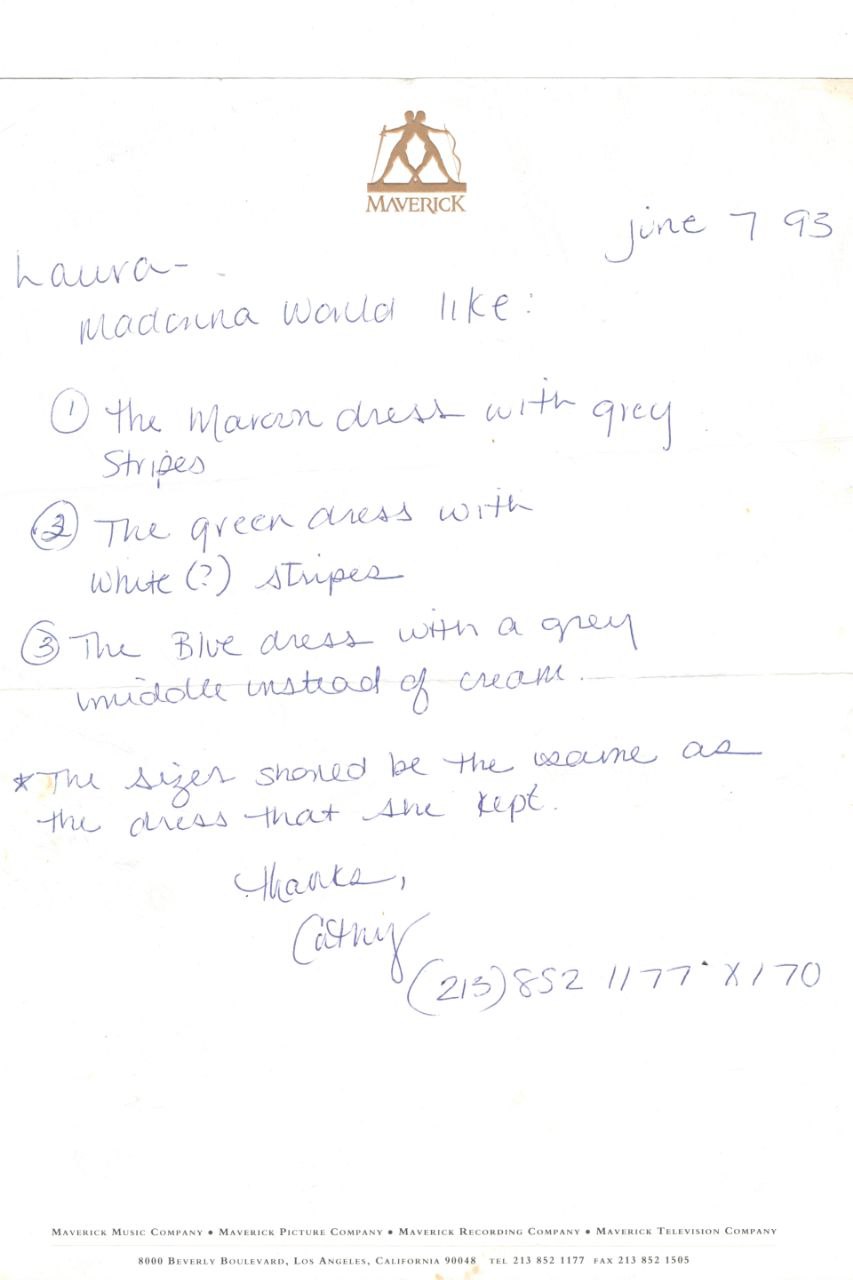 MAVERICK
june 7 93
Laura-
Madonna would like:
① the Maroon dress with grey
Stripes
② The green dress with
white (?) stripes
③ The Blue dress with a grey
middle instead of cream.
* The sizes should be the same as
the dress that she kept.
Thanks,
Cathy
(213) 852 1177 X170
MAVERICK MUSIC COMPANY • MAVERICK PICTURE COMPANY • MAVERICK RECORDING COMPANY • MAVERICK TELEVISION COMPANY
8000 BEVERLY BOULEVARD, LOS ANGELES, CALIFORNIA 90048 TEL 213 852 1177 FAX 213 852 1505